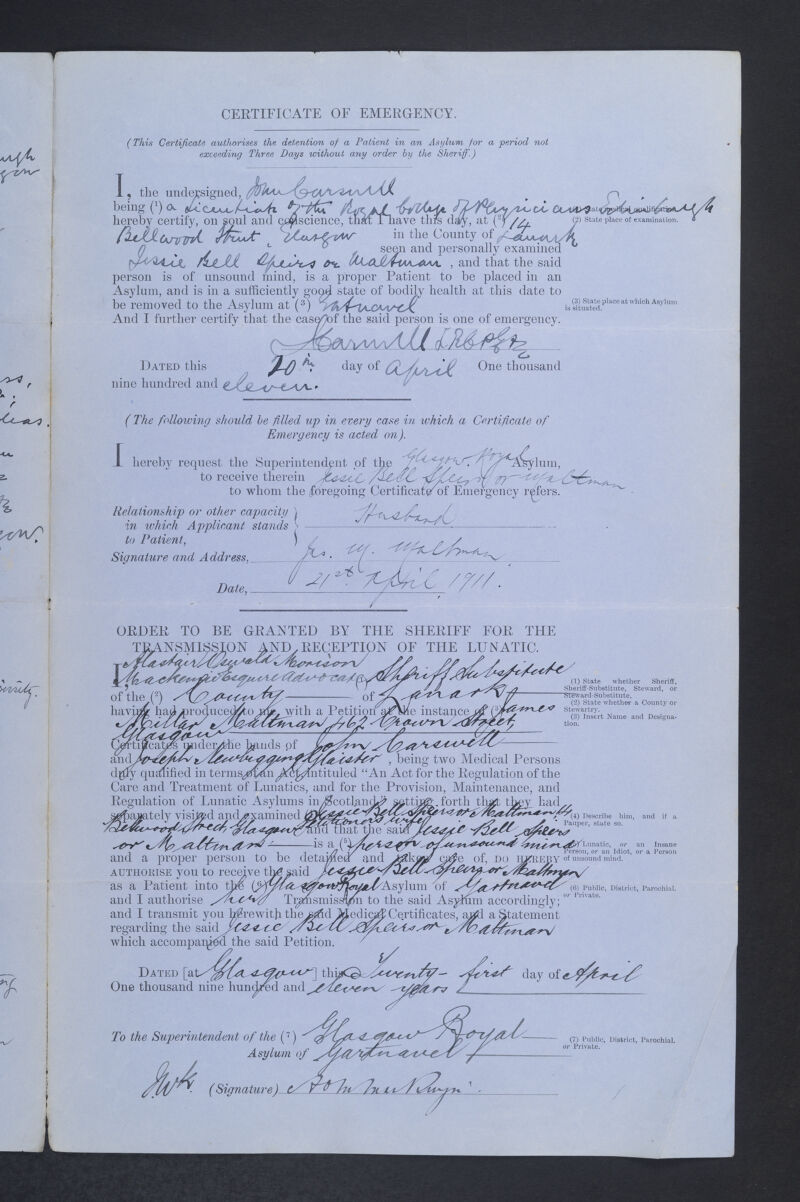 CERTIFICATE OF EMERGENCY.
(This Certificate authorises the detention of a Patient in an Asylum for a period not
exceeding Three Days without any order by the Sheriff.)
I, the undersigned, John Carswell
being (1) a Licentiate of the Royal College of Physicians Edinburgh
hereby certify, on soul and conscience, that I have this day, at (2) 14
(2) State place of examination.
Bellwood Street, Glasgow in the County of Lanark
seen and personally examined
Jessie Bell Speirs or Maltman, and that the said
person is of unsound mind, is a proper Patient to be placed in an
Asylum, and is in a sufficiently good state of bodily health at this date to
be removed to the Asylum at (3) Gartnavel
(3) State place at which Asylum
is situated.
And I further certify that the case of the said person is one of emergency.
J Carswell L.R.C.P.Ed
DATED this 20th day of April One thousand
nine hundred and eleven.
(The following should be filled up in every case in which a Certificate of
Emergency is acted on).
I hereby request the Superintendent of the Glasgow Royal Asylum,
to receive therein Jessie Bell Speirs or Maltman
to whom the foregoing Certificate of Emergency refers.
Relationship or other capacity
in which Applicant stands
to Patient,
Husband
Signature and Address, Jas. M. Maltman
Date, 21st April 1911.
ORDER TO BE GRANTED BY THE SHERIFF FOR THE
TRANSMISSION AND RECEPTION OF THE LUNATIC.
Alastair Oswald Morison
I, Mackenzie Esquire Advocate (1) Sheriff Substitute
(1) State whether Sheriff,
Sheriff-Substitute, Steward, or
Steward-Substitute.
of the (2) County of Lanark
(2) State whether a County or
Stewartry.
having had produced to me, with a Petition at the instance of (3) James
(3) Insert Name and Designa-
tion.
Millar Maltman 162 Crown Street,
Glasgow
Certificates under the hands of John Carswell
and Joseph Newbigging Glaister, being two Medical Persons
duly qualified in terms of an Act intituled "An Act for the Regulation of the
Care and Treatment of Lunatics, and for the Provision, Maintenance, and
Regulation of Lunatic Asylums in Scotland" setting forth that they had
separately visited and examined Jessie Bell Speirs or Maltman 14
(4) Describe him, and if a
Pauper, state so.
Bellwood Street, Glasgow Petitioner's wife and that the said Jessie Bell Speirs
or Maltman is a (5) person of unsound mind
(5) Lunatic, or an Insane
Person, or an Idiot, or a Person
of unsound mind.
and a proper person to be detained and taken care of, DO HEREBY
AUTHORISE you to receive the said Jessie Bell Speirs or Maltman
as a Patient into the (6) Glasgow Royal Asylum of Gartnavel
(6) Public, District, Parochial,
or Private.
and I authorise her Transmission to the said Asylum accordingly;
and I transmit you herewith the said Medical Certificates, and a Statement
regarding the said Jessie Bell Speirs or Maltman
which accompanied the said Petition.
DATED [at Glasgow] this Twenty-first day of April
One thousand nine hundred and eleven years
To the Superintendent of the (7) Glasgow Royal
Asylum of Gartnavel
(7) Public, District, Parochial,
or Private.
J.W.K. (Signature) A O M Mackenzie